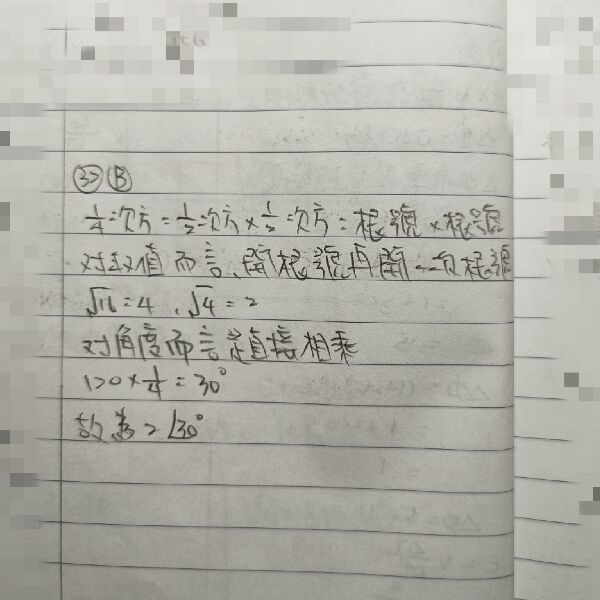 37 B
1/4次方=1/2次方×1/2次方=根號×根號
对数值而言、開根號再開一次根號
√16=4、√4=2
对角度而言是直接相乘
120×1/4=30°
故為2∠30°